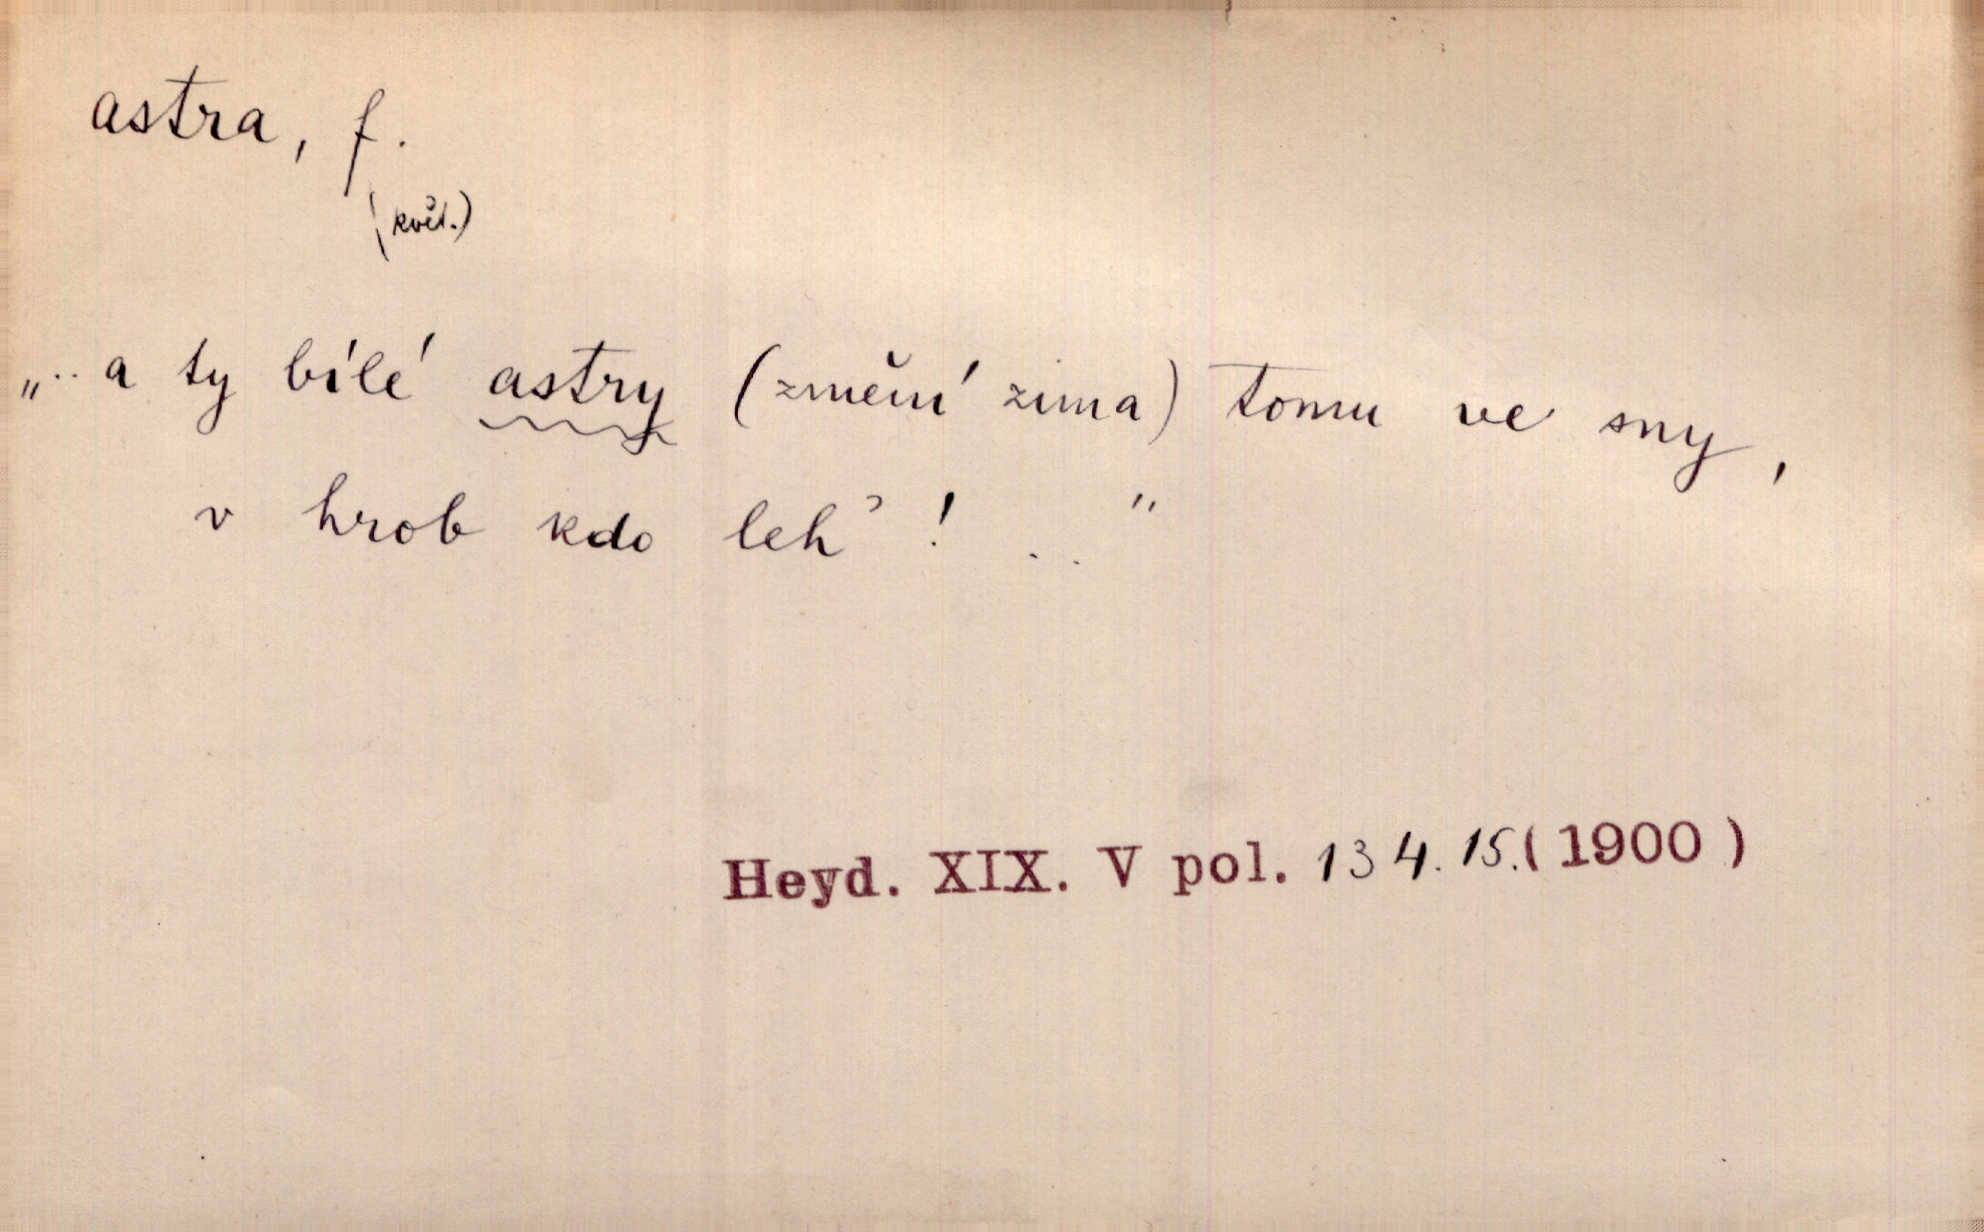 astra, f.
(květ.)
„.. a ty bílé astry (změní zima) tomu ve sny,
v hrob kdo leh'! . . "
Heyd. XIX. V pol. 134. 15. (1900)